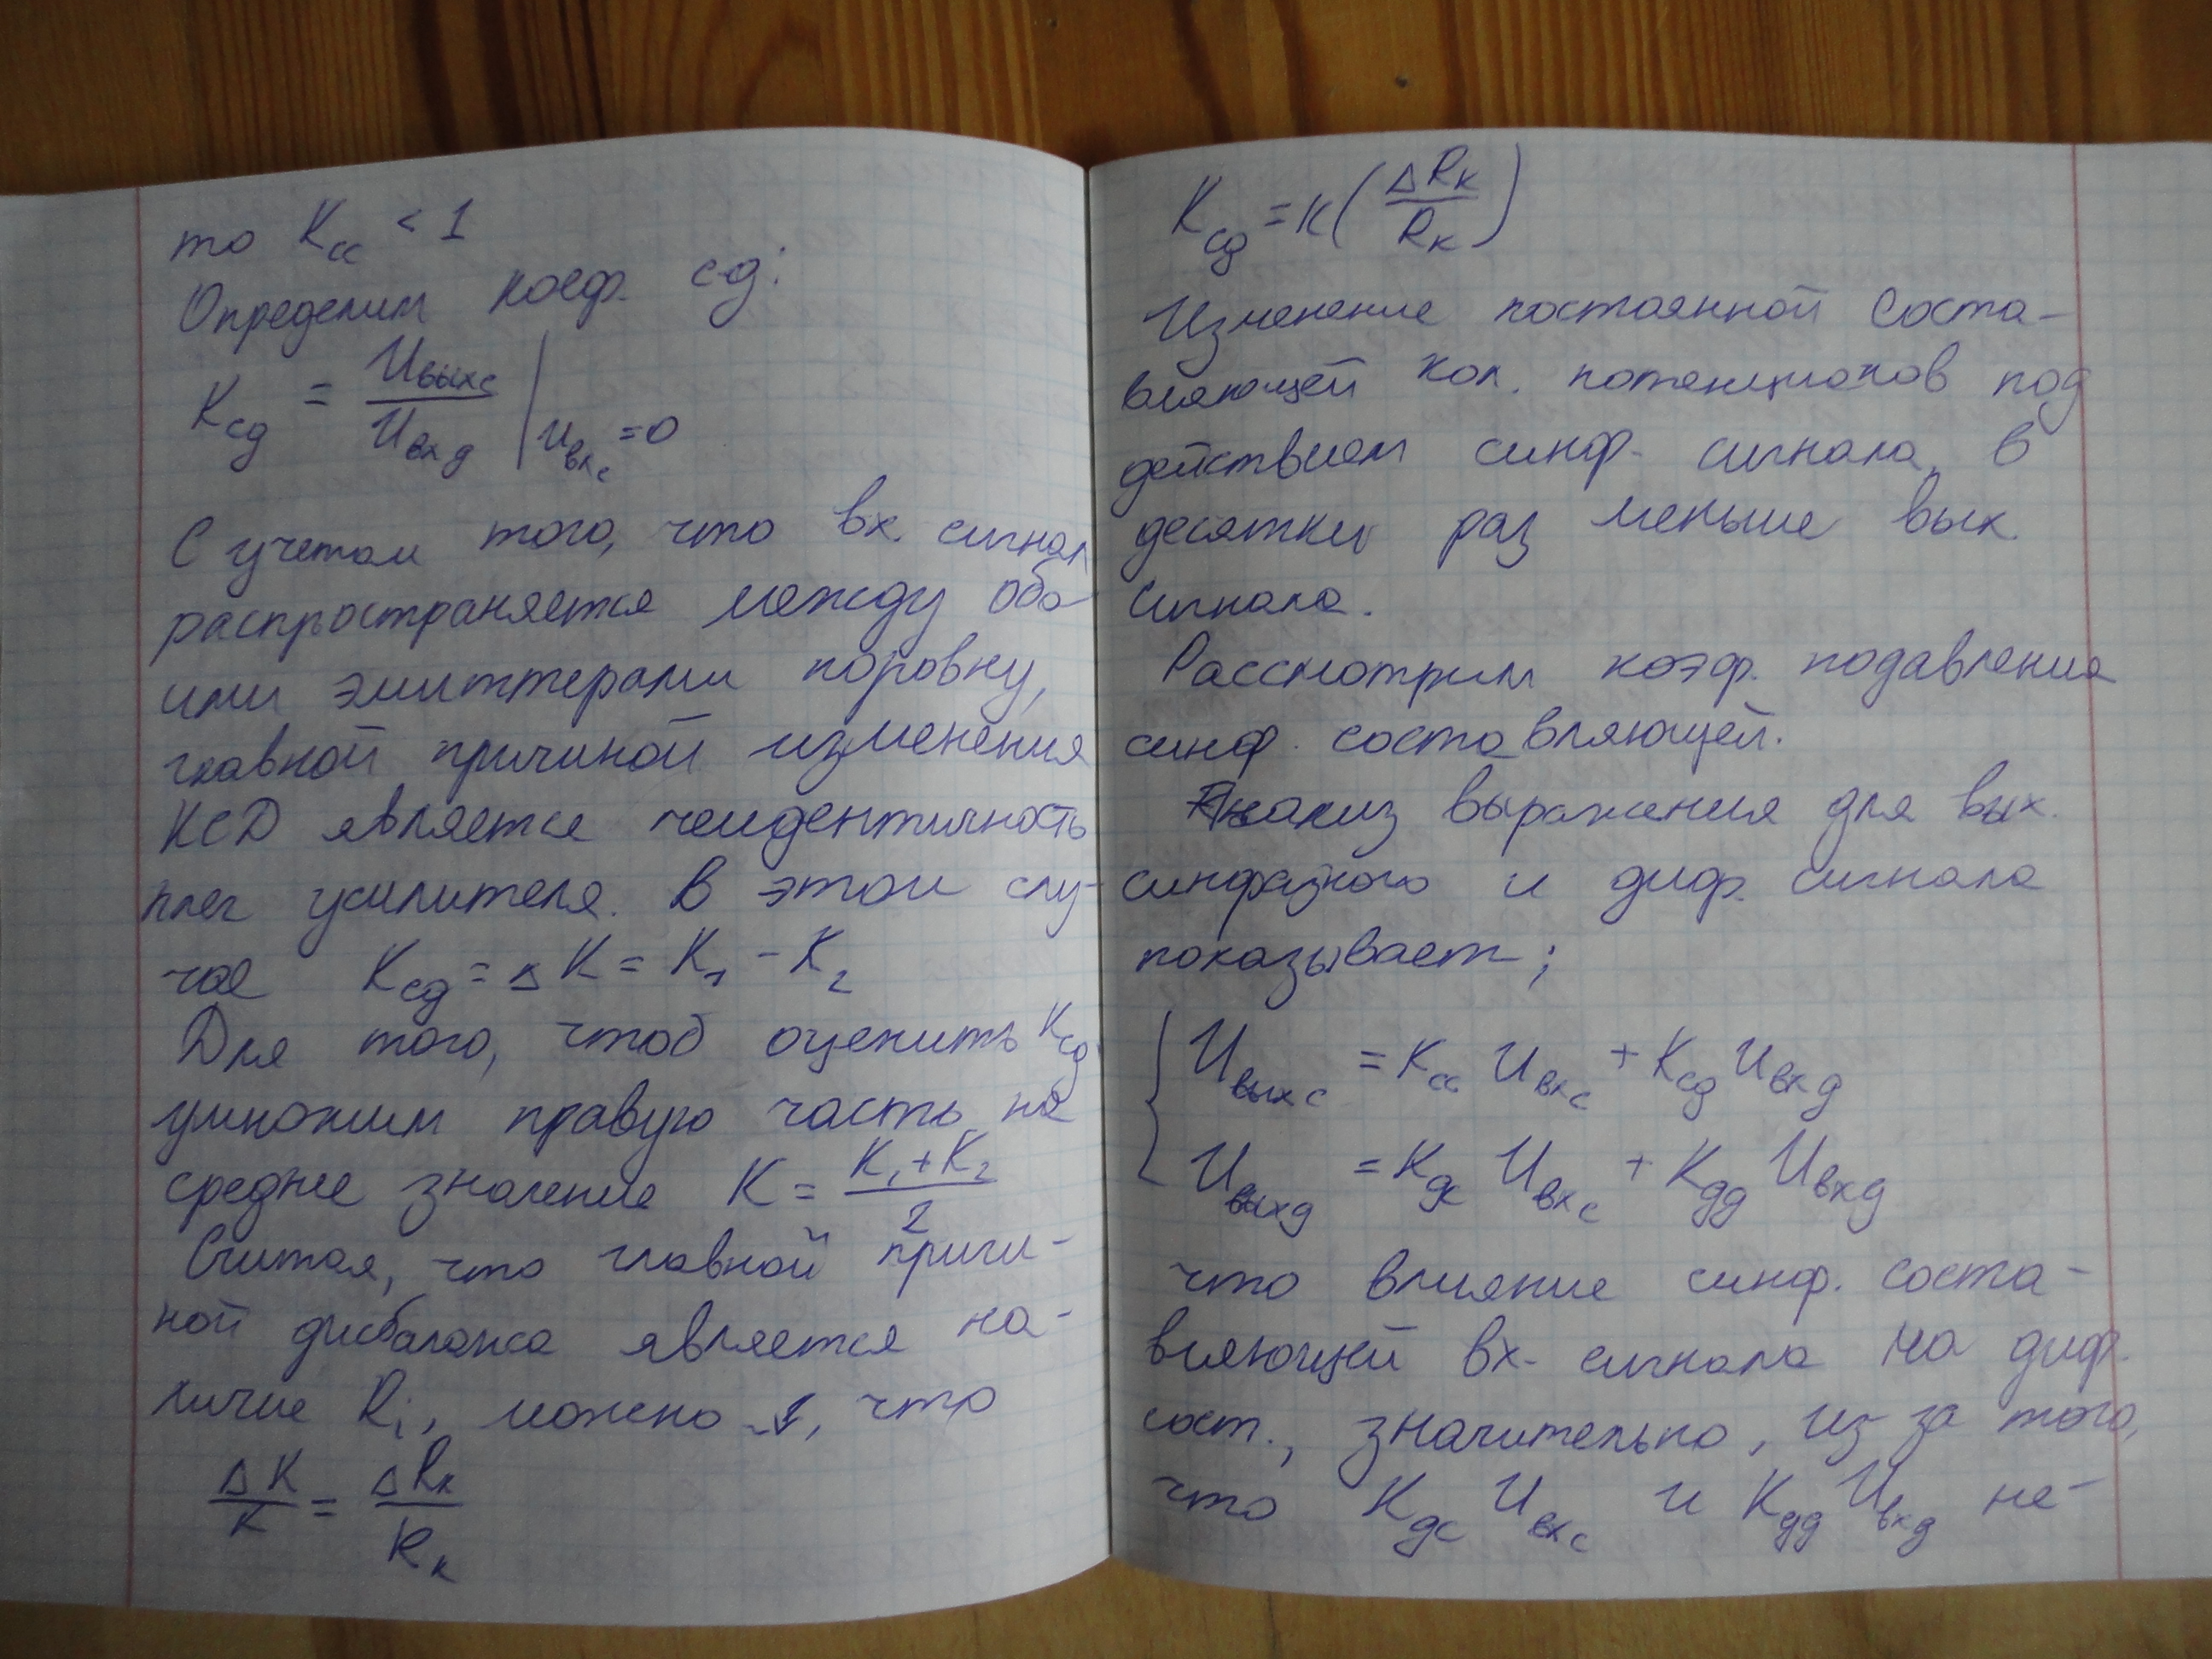 то Kсс < 1
Определим коеф. сд:
Kсд = Uвых с / Uвх д | Uвх с = 0
С учетом того, что вх. сигнал
распространяется между обо
ими эмиттерами поровну,
главной причиной изменения
КСД является неидентичность
плеч усилителя. В этом слу-
чае Kсд = ΔK = K1 - K2
Для того, чтоб оценить Kсд
умножим правую часть на
средне значение K = (K1 + K2) / 2
Считая, что главной причи-
ной дисбаланса является на-
личие Ri, можно, что
ΔK / K = ΔRк / Rк
Kсд = K(ΔRк / Rк)
Изменение постоянной соста-
вляющей кол. потенциалов под
действием синф. сигнала в
десятки раз меньше вых.
сигнала.
Рассмотрим коэф. подавления
синф. составляющей.
Анализ выражения для вых.
синфазного и диф. сигнала
показывает;
Uвых с = Kсс Uвх с + Kсд Uвх д
Uвых д = Kдс Uвх с + Kдд Uвх д
что влияние синф. соста-
вляющей вх. сигнала на диф.
сост., значительно, из-за того,
что Kдс Uвх с и Kдд Uвх д не-